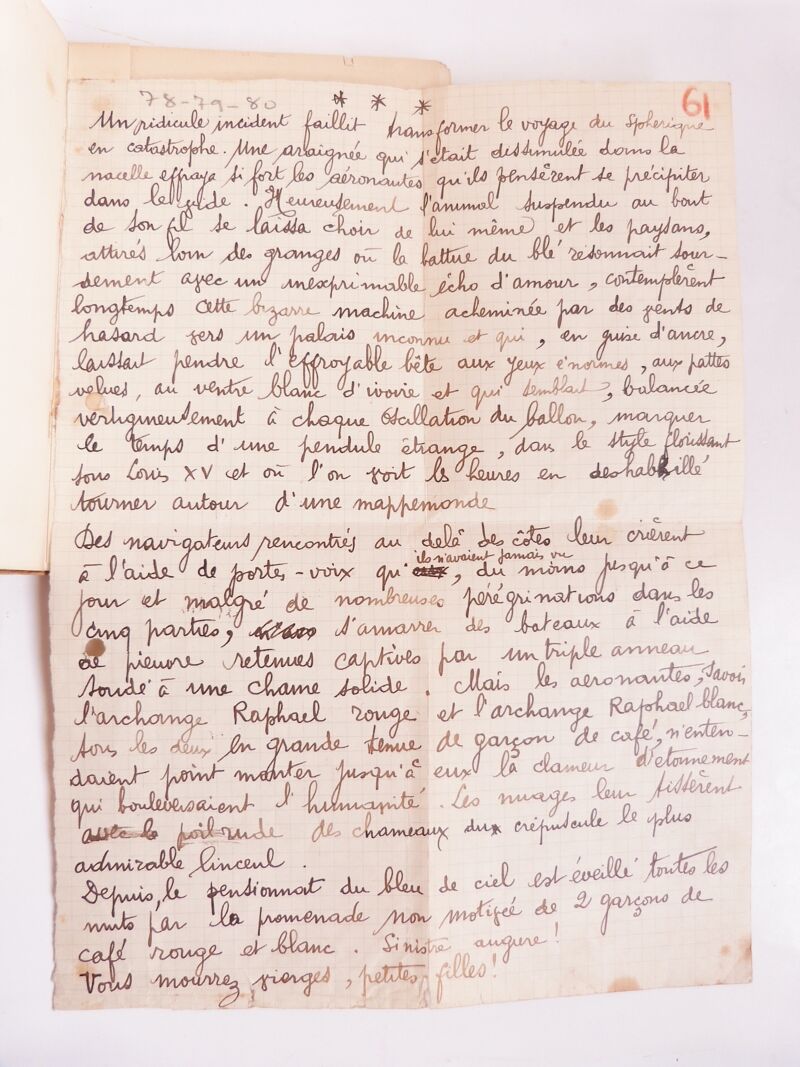 78-79-80
* * *
61
Un ridicule incident faillit transformer le voyage du Spherique
en catastrophe. Une araignée qui s'était dissimulée dans la
nacelle effraya si fort les aéronautes qu'ils pensèrent se précipiter
dans le vide. Heureusement l'animal suspendu au bout
de son fil se laissa choir de lui même et les paysans,
attirés loin des granges où la battue du blé résonnait sour-
dement avec un inexprimable écho d'amour, contemplèrent
longtemps cette bizarre machine acheminée par des vents de
hasard vers un palais inconnu et qui, en guise d'ancre,
laissait pendre l'effroyable bête aux yeux énormes, aux pattes
velues, au ventre blanc d'ivoire et qui semblait, balancée
vertigineusement à chaque oscillation du ballon, marquer
le temps d'une pendule étrange, dans le style floissant
sous Louis XV et où l'on voit les heures en deshabillé
tourner autour d'une mappemonde
Des navigateurs rencontrés au delà des côtes leur crièrent
à l'aide de portes-voix qu'ils n'avaient jamais vu, du moins jusqu'à ce
jour et malgré de nombreuses pérégrinations dans les
cinq parties, s'amarrer des bateaux à l'aide
de pieuvre retenues captives par un triple anneau
soudé à une chaine solide. Mais les aeronautes, savoir
l'archange Raphael rouge et l'archange Raphael blanc,
tous les deux en grande tenue de garçon de café, n'enten-
daient point monter jusqu'à eux la clameur d'étonnement
qui bouleversaient l'humanité. Les nuages leur tissèrent
avec le poil rude des chameaux du crépuscule le plus
admirable linceul.
Depuis, le pensionnat du bleu de ciel est éveillé toutes les
nuits par la promenade non motivée de 2 garçons de
café rouge et blanc. Sinistre augure!
Vous mourrez vierges, petites filles!